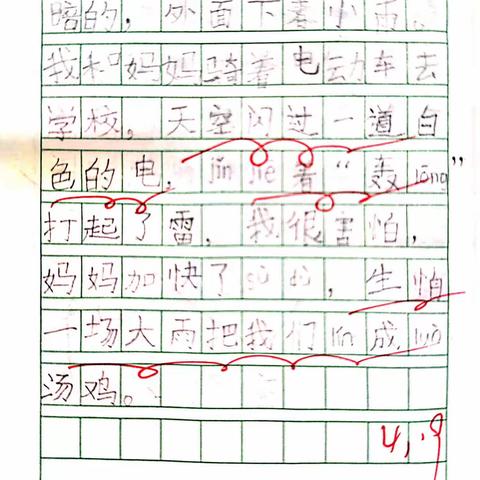 暗的，外面下着小雨。
我和妈妈骑着电动车去
学校，天空闪过一道白
色的电，jǐn jiē着“轰lōng”
打起了雷，我很害怕，
妈妈加快了sù dù，生怕
一场大雨把我们lín成luò
汤鸡。
4.9